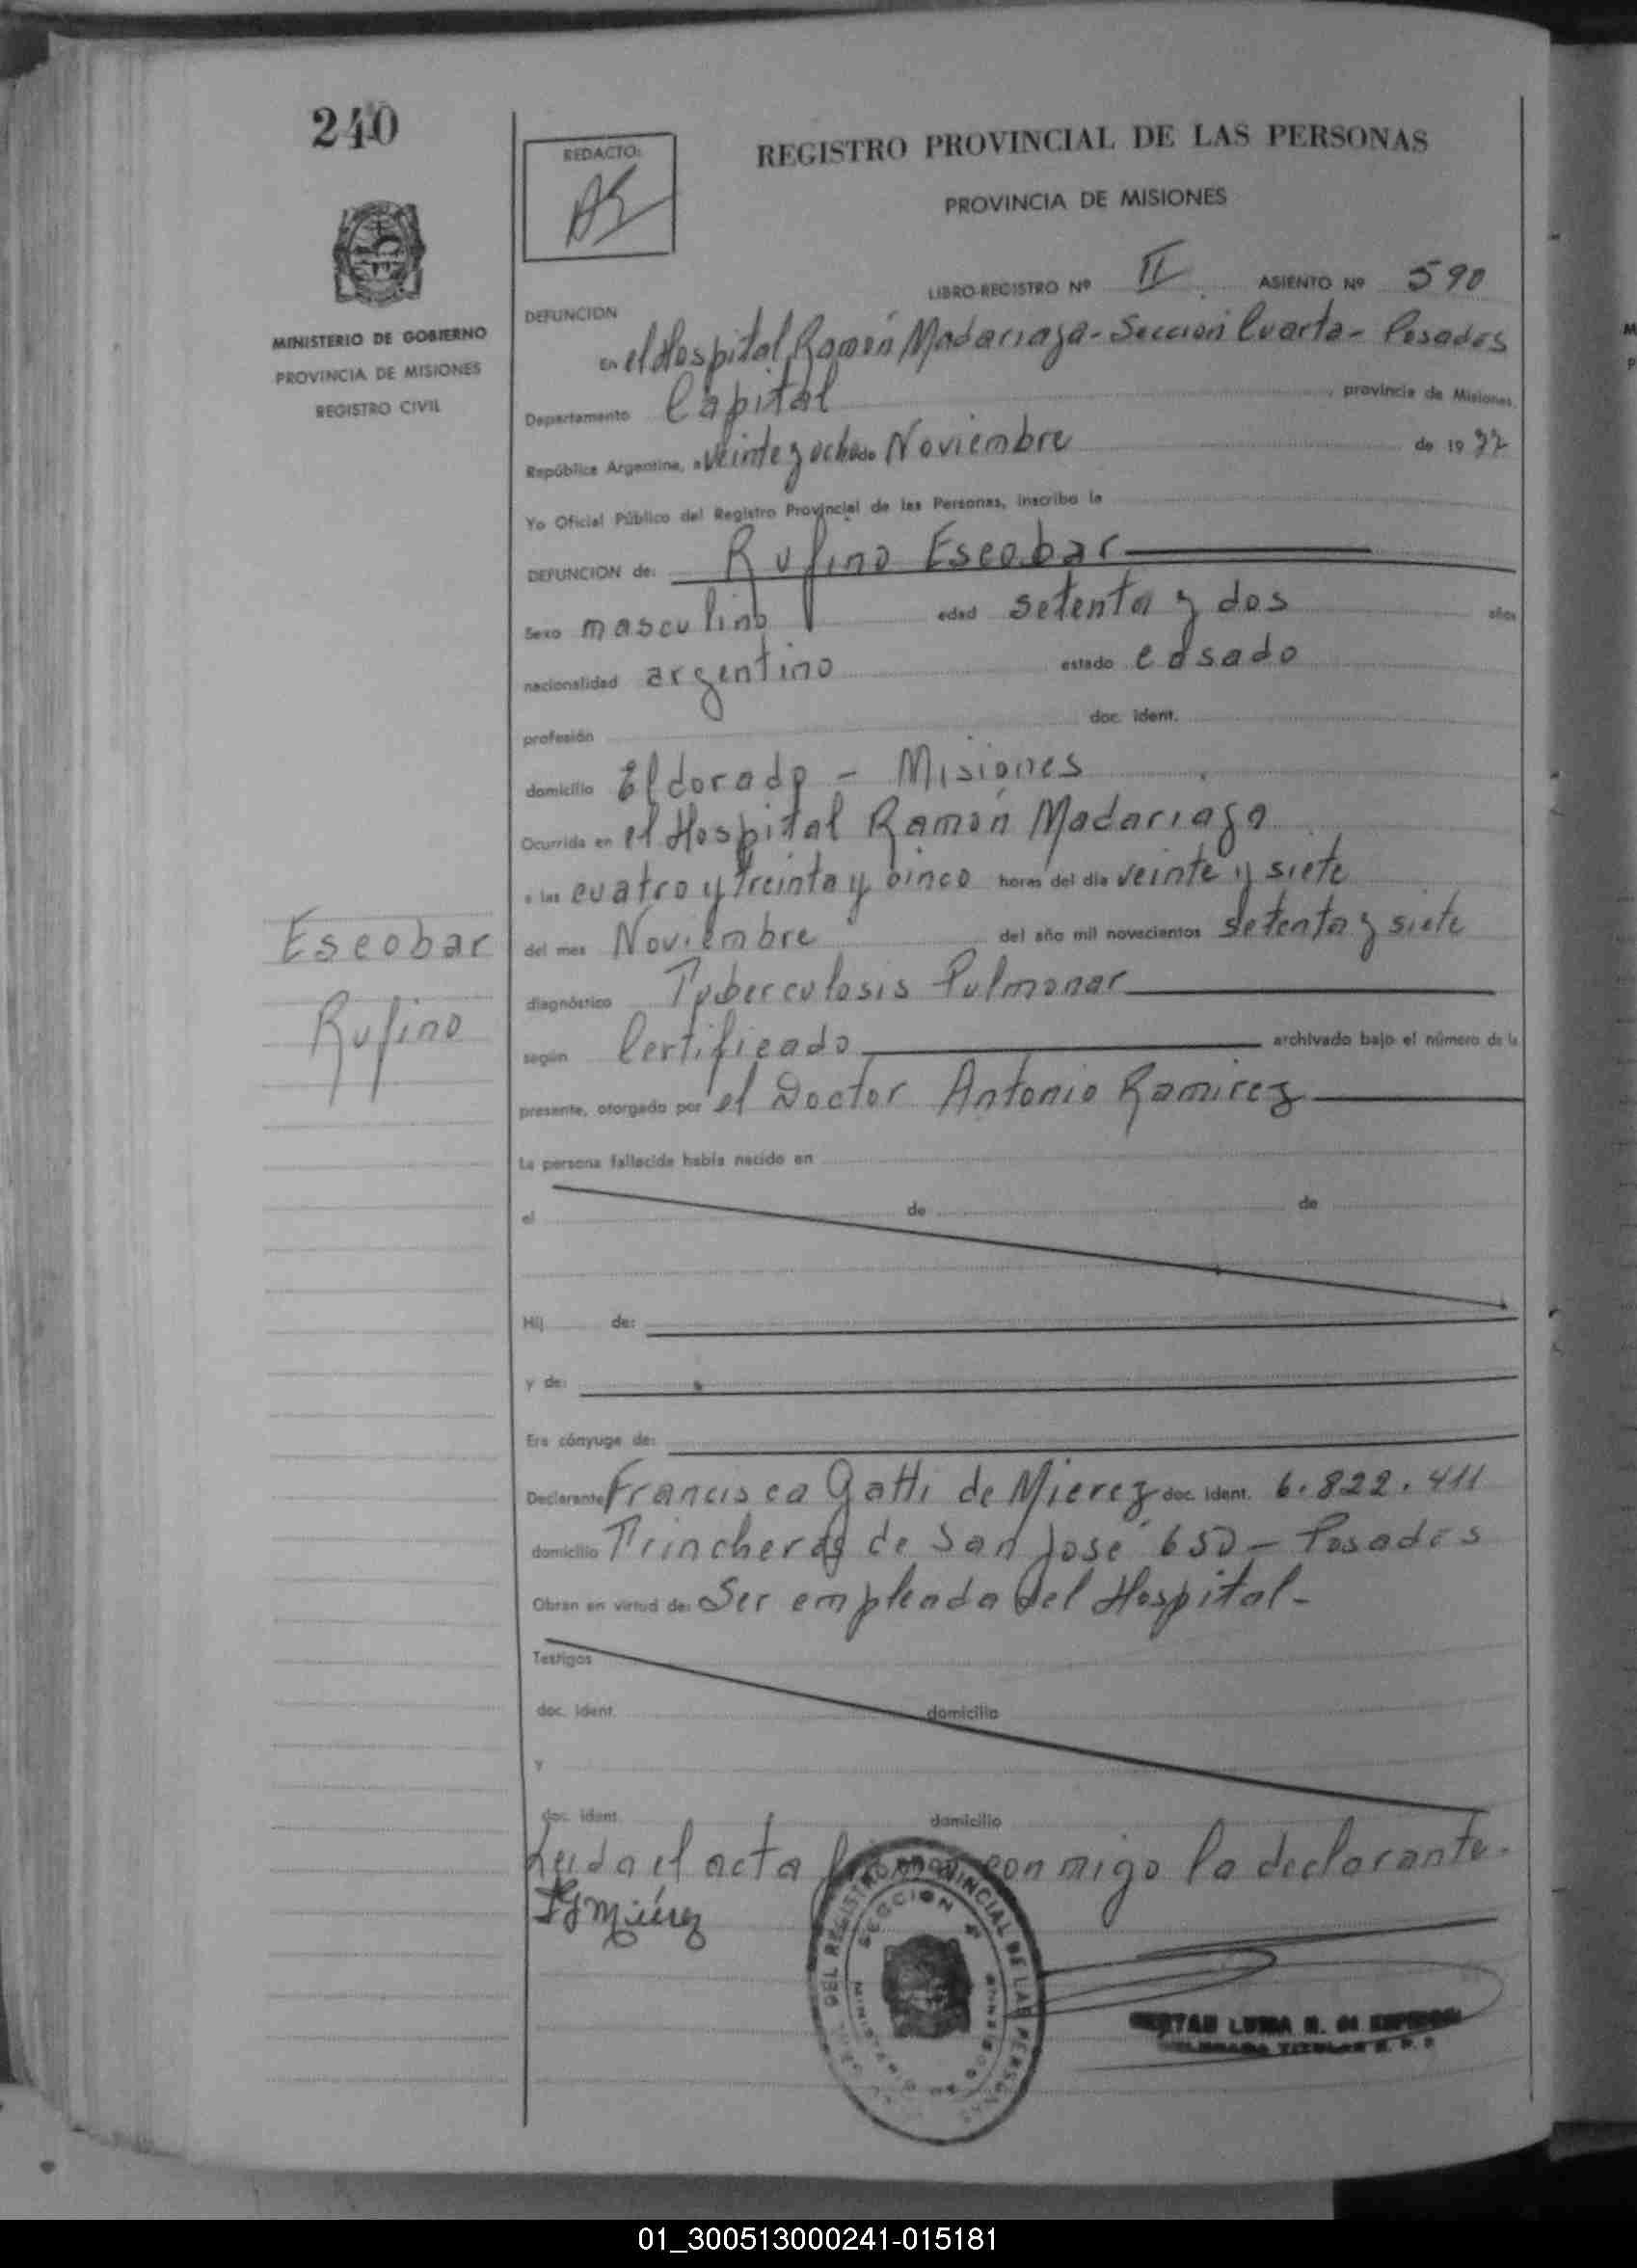 240
REDACTO:
REGISTRO PROVINCIAL DE LAS PERSONAS
PROVINCIA DE MISIONES
MINISTERIO DE GOBIERNO
PROVINCIA DE MISIONES
REGISTRO CIVIL
LIBRO-REGISTRO Nº II ASIENTO Nº 590
DEFUNCION
En el Hospital Ramón Madariaga - Sección Cuarta - Posadas
Departamento Capital, provincia de Misiones,
República Argentina, a veinte y ocho de Noviembre de 1977
Yo Oficial Público del Registro Provincial de las Personas, inscribo la
DEFUNCION de: Rufino Escobar
Sexo masculino edad setenta y dos años
nacionalidad argentino estado casado
profesión doc. ident.
domicilio Eldorado - Misiones
Ocurrida en el Hospital Ramón Madariaga
a las cuatro y treinta y cinco horas del día veinte y siete
Escobar
del mes Noviembre del año mil novecientos setenta y siete
diagnóstico Tuberculosis Pulmonar
Rufino
según Certificado archivado bajo el número de la
presente, otorgado por el Doctor Antonio Ramirez
La persona fallecida había nacido en
el de de
Hij de:
y de:
Era cónyuge de:
Declarante Francisca Gatti de Mierez doc. ident. 6.822.411
domicilio Trincheras de San José 650 - Posadas
Obran en virtud de: Ser empleada del Hospital -
Testigos
doc. ident. domicilio
y
doc. ident. domicilio
Leida el acta conmigo la declarante.
FGMiérez
DEL REGISTRO PROVINCIAL DE LAS PERSONAS
SECCION 4ª
01_300513000241-015181